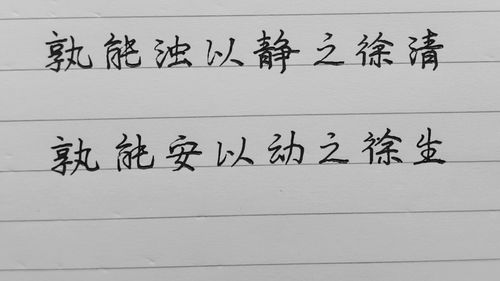 孰能浊以静之徐清
孰能安以动之徐生